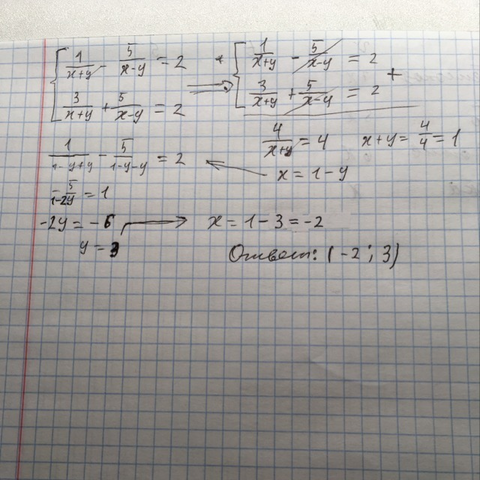 1/(x+y) - 5/(x-y) = 2
3/(x+y) + 5/(x-y) = 2
⇒
1/(x+y) - 5/(x-y) = 2
3/(x+y) + 5/(x-y) = 2
+
4/(x+y) = 4 x+y = 4/4 = 1
x = 1 - y
1/(1-y+y) - 5/(1-y-y) = 2
-5/(1-2y) = 1
-2y = -6 → x = 1 - 3 = -2
y = 3
Ответ: (-2 ; 3)